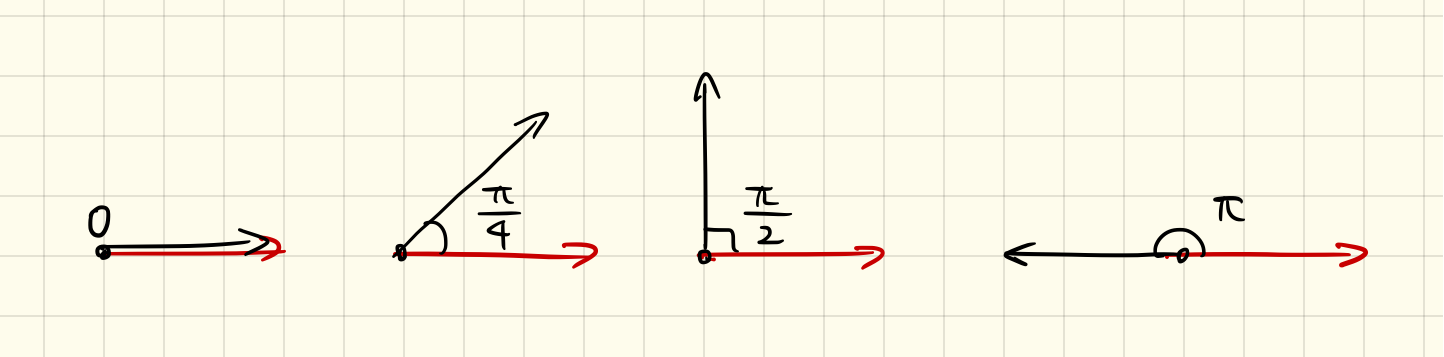 0
π/4
π/2
π